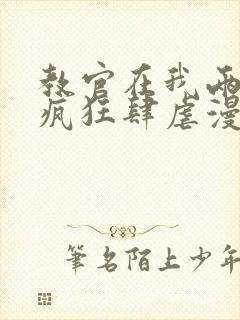 教官在我两
疯狂肆虐漫
筆名陌上少年